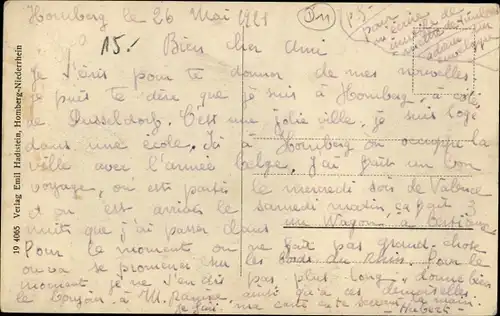 Homberg le 26 Mai 1921
15.-
Bien cher ami
Je t'écris pour te donner de mes nouvelles
je puis te dire que je suis à Homberg, à coté
de Dusseldorf. C'est une jolie ville, je suis logé
dans une école. Ici à Homberg on occupe la
ville avec l'armée belge, j'ai fait un bon
voyage, on est partis le mercredi soir de Valence
et on est arrivés le samedi matin, ça fait 3
nuits que j'ai passer dans un Wagon, à Bestiaux
Pour le moment on ne fait pas grand-chose
on va se promener sur les bords du Rhin. Pour le
moment je ne t'en dis pas plus long, donne bien
le bonjour à M. ainsi qu'à ces demoiselles
19 4065 Verlag Emil Hadstein, Homberg-Niederrhein